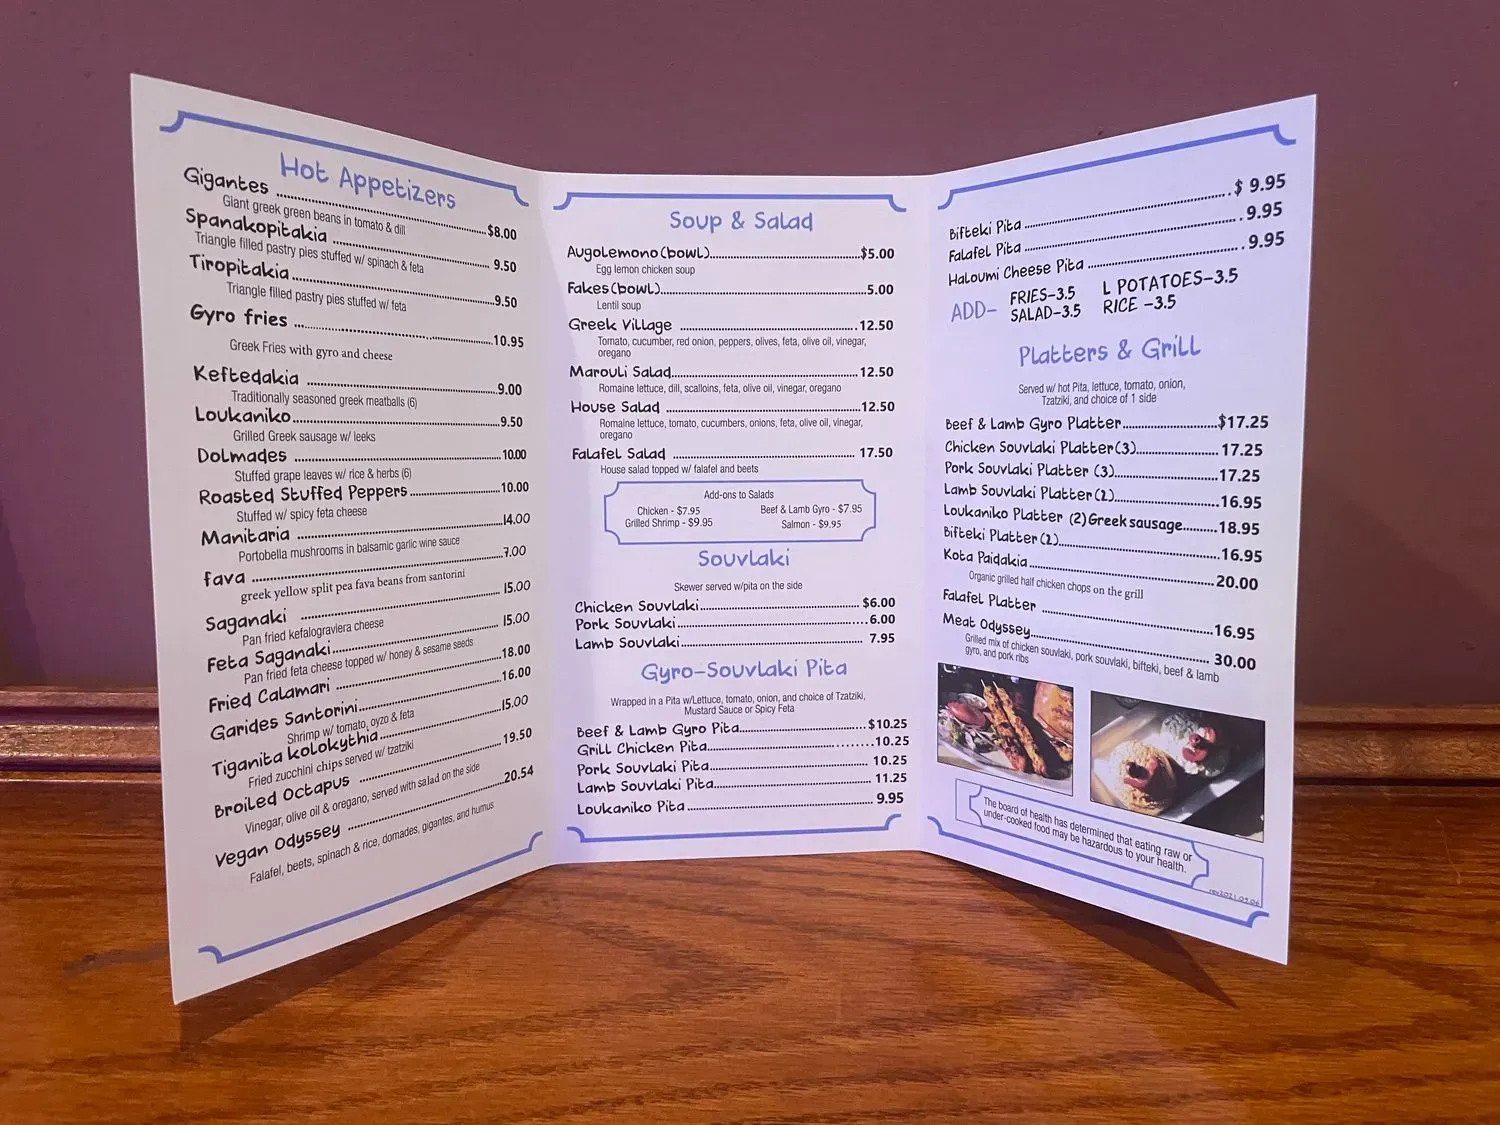 Hot Appetizers
Gigantes ........ $8.00
Giant greek green beans in tomato & dill
Spanakopitakia ........ 9.50
Triangle filled pastry pies stuffed w/ spinach & feta
Tiropitakia ........ 9.50
Triangle filled pastry pies stuffed w/ feta
Gyro fries ........ 10.95
Greek Fries with gyro and cheese
Keftedakia ........ 9.00
Traditionally seasoned greek meatballs (6)
Loukaniko ........ 9.50
Grilled Greek sausage w/ leeks
Dolmades ........ 10.00
Stuffed grape leaves w/ rice & herbs (6)
Roasted Stuffed Peppers ........ 10.00
Stuffed w/ spicy feta cheese
Manitaria ........ 14.00
Portobella mushrooms in balsamic garlic wine sauce
fava ........ 7.00
greek yellow split pea fava beans from santorini
Saganaki ........ 15.00
Pan fried kefalograviera cheese
Feta Saganaki ........ 15.00
Pan fried feta cheese topped w/ honey & sesame seeds
Fried Calamari ........ 18.00
Garides Santorini ........ 16.00
Shrimp w/ tomato, oyzo & feta
Tiganita kolokythia ........ 15.00
Fried zucchini chips served w/ tzatziki
Broiled Octapus ........ 19.50
Vinegar, olive oil & oregano, served with salad on the side
Vegan Odyssey ........ 20.54
Falafel, beets, spinach & rice, domades, gigantes, and humus
Soup & Salad
Augolemono (bowl) ........ $5.00
Egg lemon chicken soup
Fakes (bowl) ........ 5.00
Lentil soup
Greek Village ........ 12.50
Tomato, cucumber, red onion, peppers, olives, feta, olive oil, vinegar,
oregano
Marouli Salad ........ 12.50
Romaine lettuce, dill, scalloins, feta, olive oil, vinegar, oregano
House Salad ........ 12.50
Romaine lettuce, tomato, cucumbers, onions, feta, olive oil, vinegar,
oregano
Falafel Salad ........ 17.50
House salad topped w/ falafel and beets
Add-ons to Salads
Chicken - $7.95 Beef & Lamb Gyro - $7.95
Grilled Shrimp - $9.95 Salmon - $9.95
Souvlaki
Skewer served w/pita on the side
Chicken Souvlaki ........ $6.00
Pork Souvlaki ........ 6.00
Lamb Souvlaki ........ 7.95
Gyro-Souvlaki Pita
Wrapped in a Pita w/Lettuce, tomato, onion, and choice of Tzatziki,
Mustard Sauce or Spicy Feta
Beef & Lamb Gyro Pita ........ $10.25
Grill Chicken Pita ........ 10.25
Pork Souvlaki Pita ........ 10.25
Lamb Souvlaki Pita ........ 11.25
Loukaniko Pita ........ 9.95
Bifteki Pita ........ $ 9.95
Falafel Pita ........ 9.95
Haloumi Cheese Pita ........ 9.95
ADD- FRIES-3.5 L POTATOES-3.5
SALAD-3.5 RICE -3.5
Platters & Grill
Served w/ hot Pita, lettuce, tomato, onion,
Tzatziki, and choice of 1 side
Beef & Lamb Gyro Platter ........ $17.25
Chicken Souvlaki Platter (3) ........ 17.25
Pork Souvlaki Platter (3) ........ 17.25
Lamb Souvlaki Platter (2) ........ 16.95
Loukaniko Platter (2) Greek sausage ........ 18.95
Bifteki Platter (2) ........ 16.95
Kota Paidakia ........ 20.00
Organic grilled half chicken chops on the grill
Falafel Platter ........ 16.95
Meat Odyssey ........ 30.00
Grilled mix of chicken souvlaki, pork souvlaki, bifteki, beef & lamb
gyro, and pork ribs
The board of health has determined that eating raw or
under-cooked food may be hazardous to your health.
rev2021.05.06